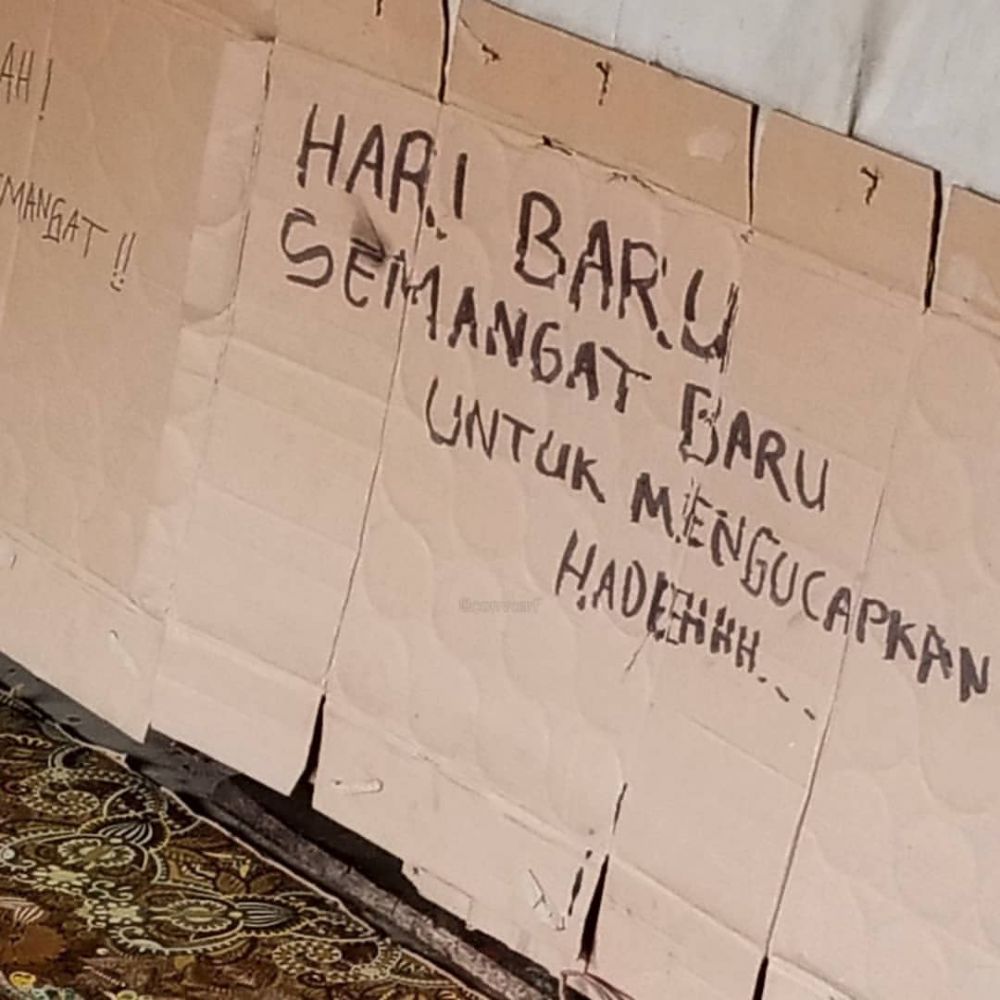 AH!
EMANGAT !!
HARI BARU
SEMANGAT BARU
UNTUK MENGUCAPKAN
HADEEHHH...